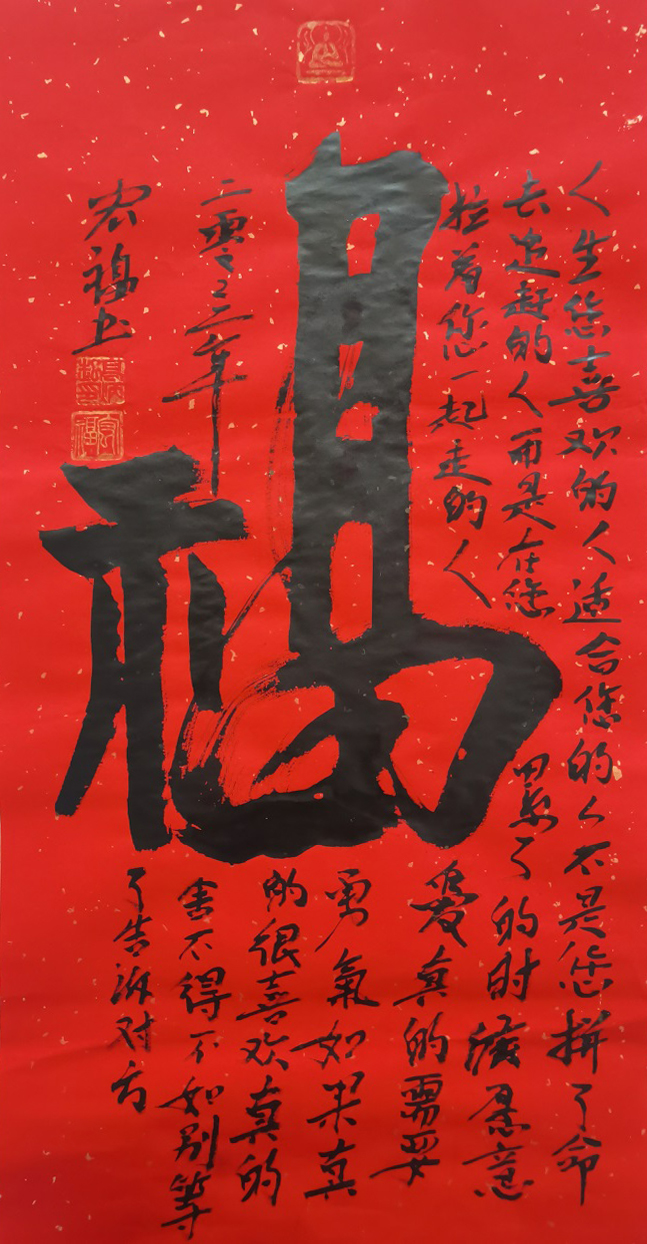 人生您喜欢的人适合您的人不是您拼了命
去追赶的人而是在您累了的时候愿意
拉着您一起走的人
愛真的需要
勇氣如果真
的很喜欢真的
舍不得不如别等
了告诉对方
福
二零二三年
宏福书
宏福